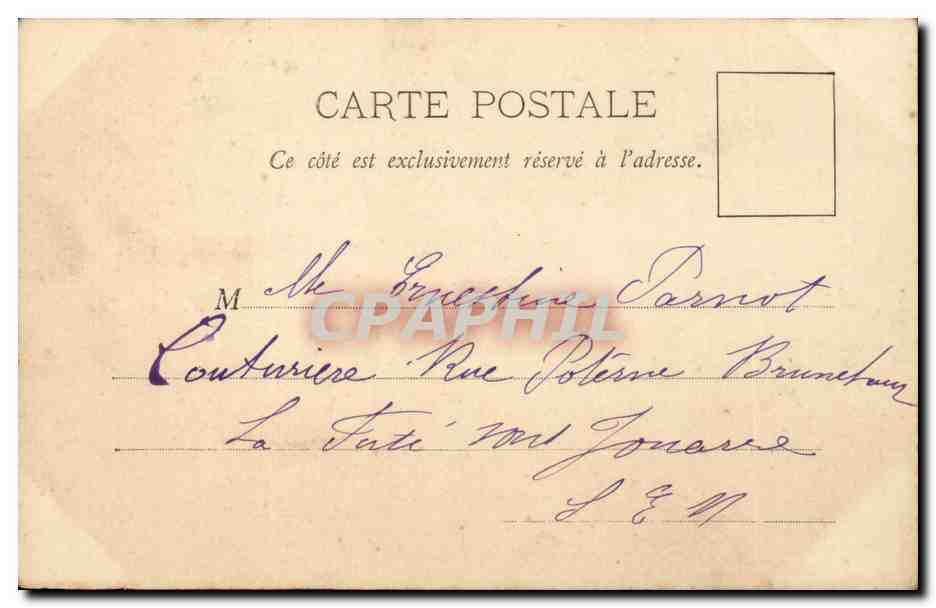 CARTE POSTALE
Ce côté est exclusivement réservé à l'adresse.
M Mlle Ernestine Parnot
CPAPHIL
Couturiere Rue Poterne
La Ferté sous Jouarre
S E M